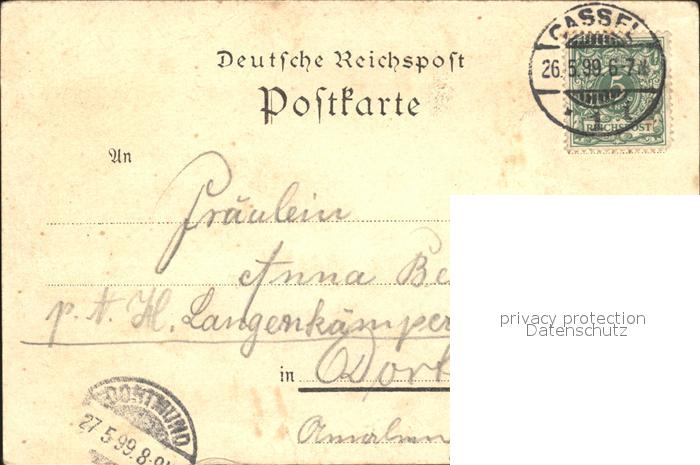 CASSEL
26.5.99.6-7
5
REICHSPOST
Deutsche Reichspost
Postkarte
An
Fräulein
Anna Be
p. A. H. Langenkämper
in Dort
privacy protection
Datenschutz
DORTMUND
27.5.99.8-9